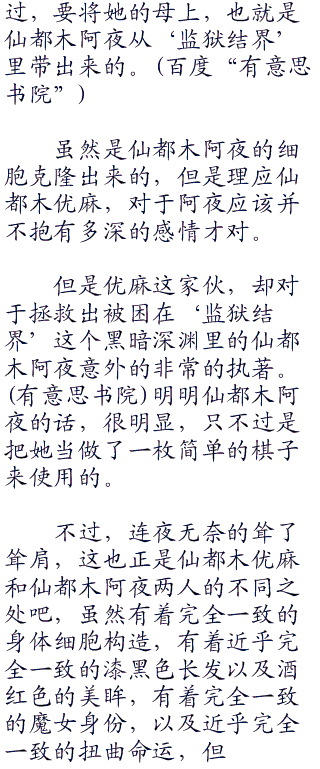 过，要将她的母上，也就是
仙都木阿夜从‘监狱结界’
里带出来的。(百度“有意思
书院”)
虽然是仙都木阿夜的细
胞克隆出来的，但是理应仙
都木优麻，对于阿夜应该并
不抱有多深的感情才对。
但是优麻这家伙，却对
于拯救出被困在‘监狱结
界’这个黑暗深渊里的仙都
木阿夜意外的非常的执著。
(有意思书院)明明仙都木阿
夜的话，很明显，只不过是
把她当做了一枚简单的棋子
来使用的。
不过，连夜无奈的耸了
耸肩，这也正是仙都木优麻
和仙都木阿夜两人的不同之
处吧，虽然有着完全一致的
身体细胞构造，有着近乎完
全一致的漆黑色长发以及酒
红色的美眸，有着完全一致
的魔女身份，以及近乎完全
一致的扭曲命运，但